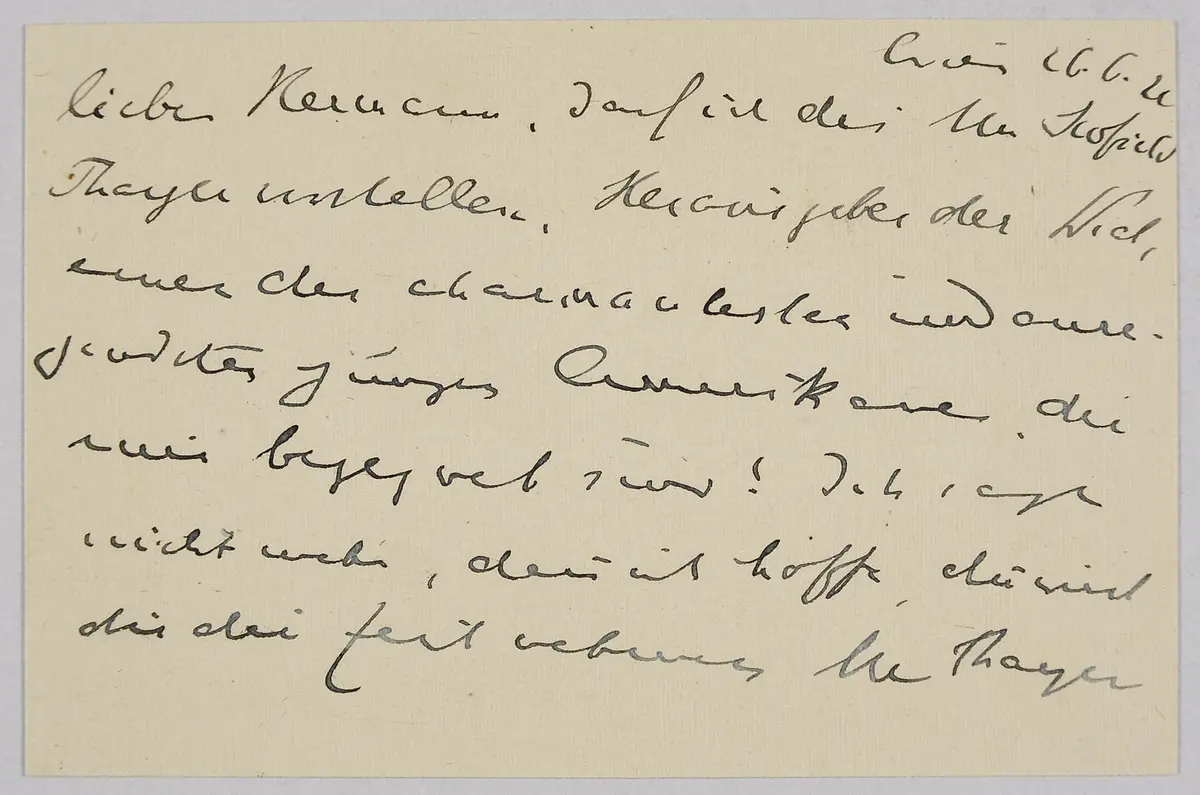 Wien 26.6.21
lieber Hermann, darf ich dir Mr Skofield
Thayer vorstellen, Herausgeber der Dial,
einen der charmantesten und anre-
gendsten jungen Amerikaner, die
mir begegnet sind! Ich sage
nicht mehr, denn ich hoffe, du wirst
dir die Zeit nehmen Mr Thayer